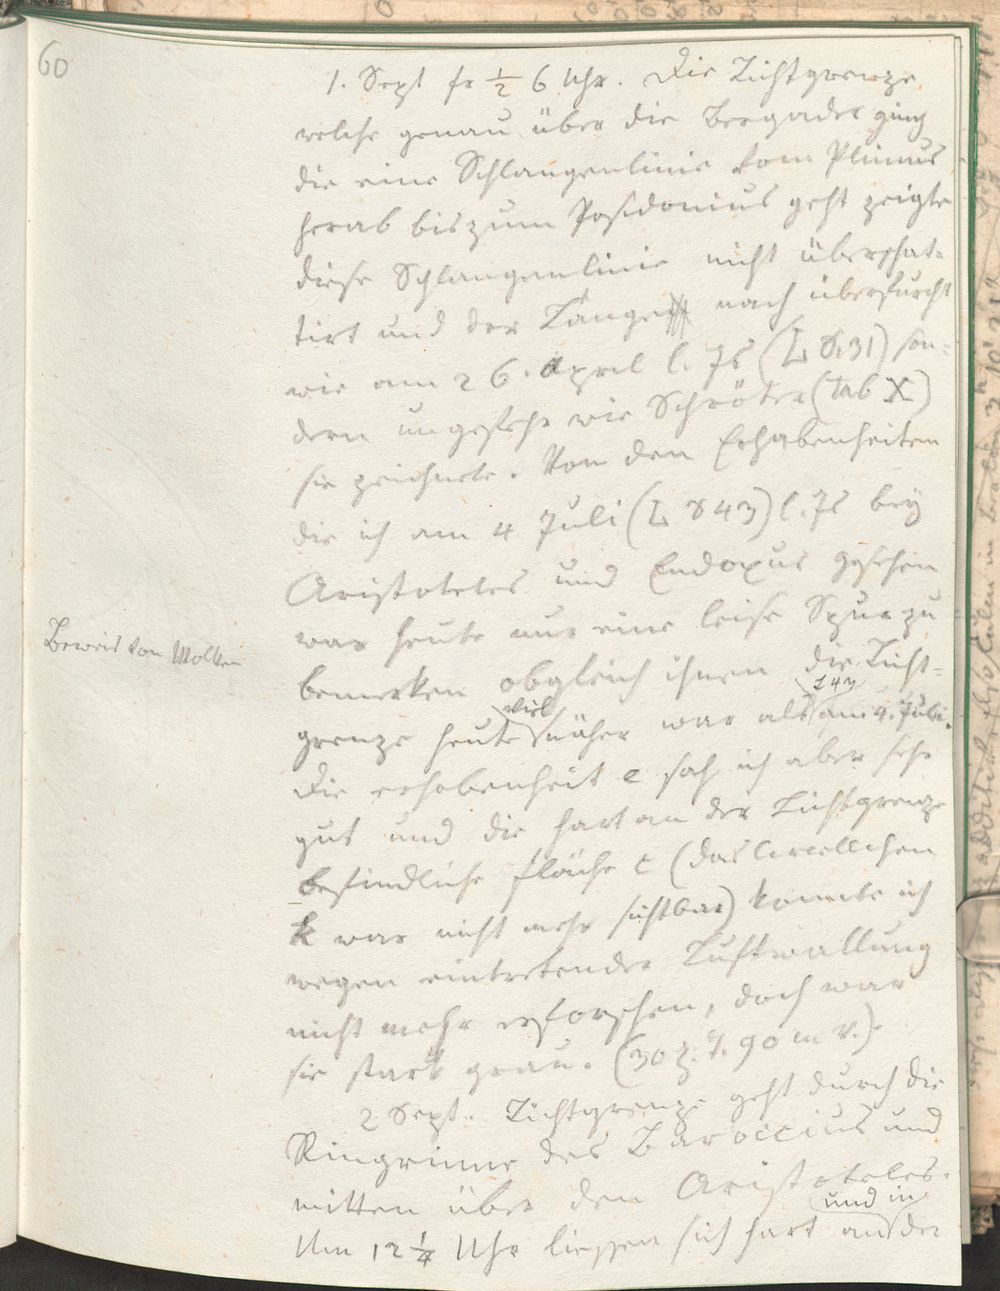 60
1. Sept fr ½ 6 Uhr. Die Lichtgrenze
welche genau über die Bergader ging
die eine Schlangenlinie vom Plinius
herab bis zum Posidonius geht zeigte
diese Schlangenlinie nicht überschat-
tirt und der Länge nach überfurcht
wie am 26. April l. Js (L 8.31) son-
dern ungefehr wie Schröter (Tab X)
sie zeichnete. Von den Erhabenheiten
die ich am 4 Juli (L 8 43) l. Js bey
Aristoteles und Eudoxus gesehen
war heute nur eine leise Spur zu
Beweis von Wolken
bemerken obgleich ihnen die Licht-
grenze heute viel näher war als am 4. Juli.
Die erhobenheit e sah ich aber sehr
gut und die hart an der Lichtgrenze
befindliche fläche c (das
k war nicht mehr sichtbar) konnte ich
wegen eintretender Luftwallung
nicht mehr erforschen, doch war
sie stark grau. (30 z. 7. 90 m V.)
2 Sept. Lichtgrenze geht durch die
Ringrinne des Baroccius und
mitten über den Aristoteles.
Um 12 ¼ Uhr liessen sich hart an und in der